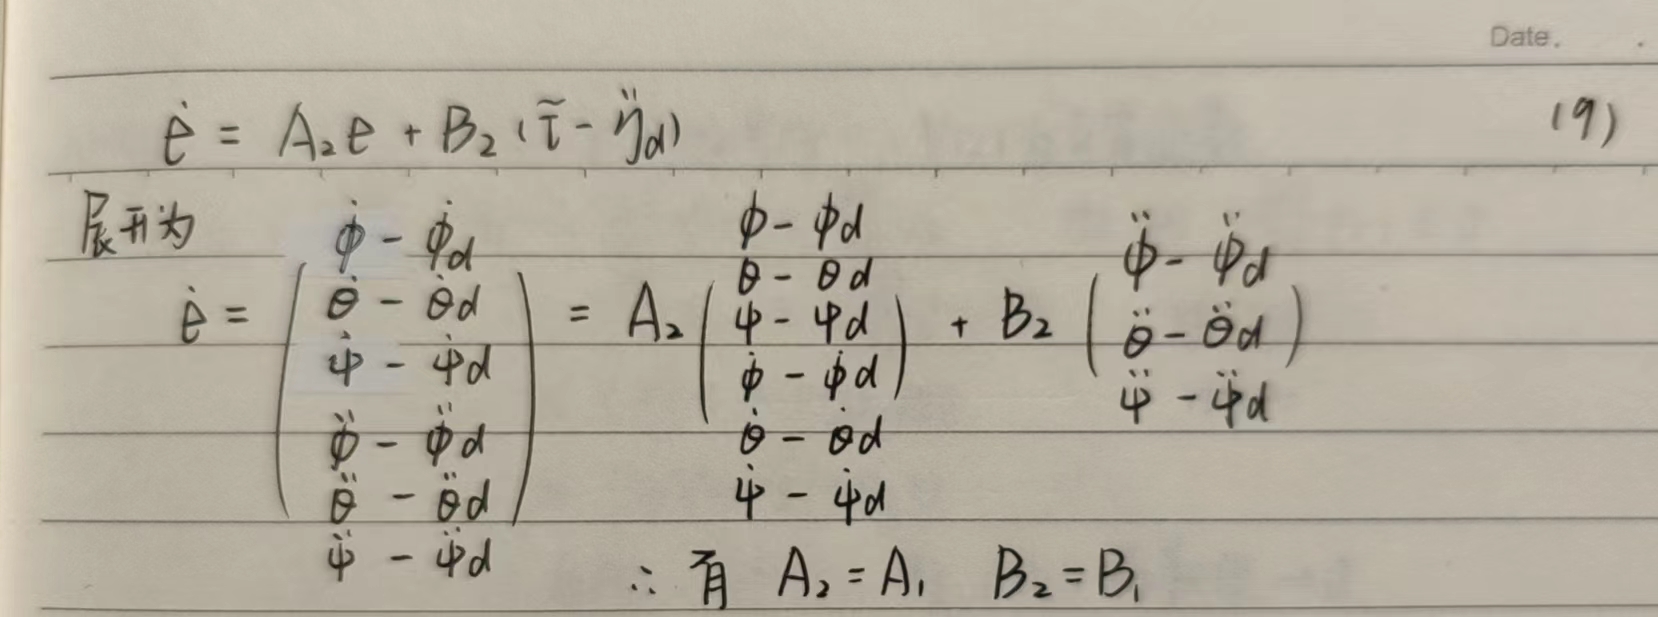 Date.
ė = A₂e + B₂(τ̃ - η̈d) (9)
展开为
ė = ( φ̇ - φ̇d ; θ̇ - θ̇d ; ψ̇ - ψ̇d ; φ̈ - φ̈d ; θ̈ - θ̈d ; ψ̈ - ψ̈d ) = A₂ ( φ - φd ; θ - θd ; ψ - ψd ; φ̇ - φ̇d ; θ̇ - θ̇d ; ψ̇ - ψ̇d ) + B₂ ( φ̈ - φ̈d ; θ̈ - θ̈d ; ψ̈ - ψ̈d )
∴ 有 A₂ = A₁ B₂ = B₁